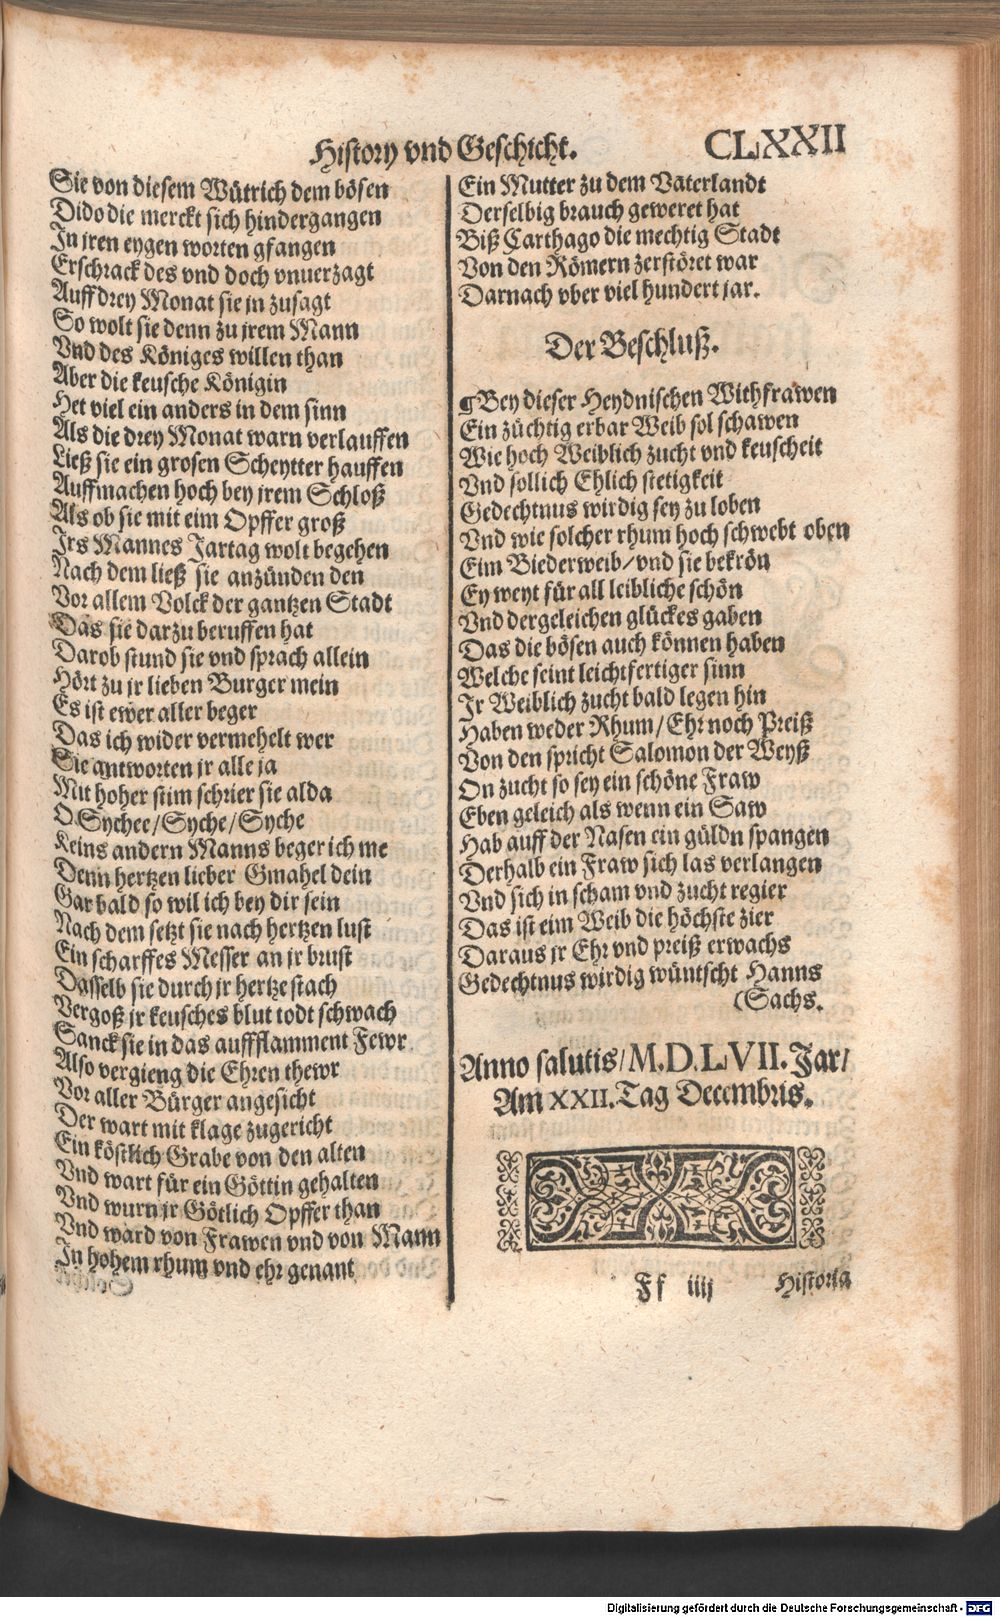 History vnd Geschicht.
CLXXII
Sie von diesem Wütrich dem bösen
Dido die merckt sich hindergangen
In jren eygen worten gfangen
Erschrack des vnd doch vnuerzagt
Auff drey Monat sie jn zusagt
So wolt sie denn zu jrem Mann
Vnd des Königes willen than
Aber die keusche Königin
Het viel ein anders in dem sinn
Als die drey Monat warn verlauffen
Ließ sie ein grosen Scheytter hauffen
Auffmachen hoch bey jrem Schloß
Als ob sie mit eim Opffer groß
Irs Mannes Jartag wolt begehen
Nach dem ließ sie anzünden den
Vor allem Volck der gantzen Stadt
Das sie darzu beruffen hat
Darob stund sie vnd sprach allein
Hört zu jr lieben Burger mein
Es ist ewer aller beger
Das ich wider vermehelt wer
Sie antworten jr alle ja
Mit hoher stim schrier sie alda
O Sychee/Syche/Syche
Keins andern Manns beger ich me
Denn hertzen lieber Gmahel dein
Gar bald so wil ich bey dir sein
Nach dem setzt sie nach hertzen lust
Ein scharffes Messer an jr brust
Dasselb sie durch jr hertze stach
Vergoß jr keusches blut todt schwach
Sanck sie in das auffflamment Fewr
Also vergieng die Ehren thewr
Vor aller Bürger angesicht
Der wart mit klage zugericht
Ein köstlich Grabe von den alten
Vnd wart für ein Göttin gehalten
Vnd wurn jr Götlich Opffer than
Vnd ward von Frawen vnd von Mann
In hohem rhum vnd ehr genant
Ein Mutter zu dem Vaterlandt
Derselbig brauch geweret hat
Biß Carthago die mechtig Stadt
Von den Römern zerstöret war
Darnach vber viel hundert jar.
Der Beschluß.
Bey dieser Heydnischen Withfrawen
Ein züchtig erbar Weib sol schawen
Wie hoch Weiblich zucht vnd keuscheit
Vnd sollich Ehlich stetigkeit
Gedechtnus wirdig sey zu loben
Vnd wie solcher rhum hoch schwebt oben
Eim Biederweib/vnd sie bekrön
Ey weyt für all leibliche schön
Vnd dergeleichen glückes gaben
Das die bösen auch können haben
Welche seint leichtfertiger sinn
Ir Weiblich zucht bald legen hin
Haben weder Rhum/Ehr noch Preiß
Von den spricht Salomon der Weyß
On zucht so sey ein schöne Fraw
Eben geleich als wenn ein Saw
Hab auff der Nasen ein güldn spangen
Derhalb ein Fraw sich las verlangen
Vnd sich in scham vnd zucht regier
Das ist eim Weib die höchste zier
Daraus jr Ehr vnd preiß erwachs
Gedechtnus wirdig wüntscht Hanns
(Sachs.
Anno salutis/M.D.LVII.Jar/
Am XXII.Tag Decembris.
Ff iiij
Historia
Digitalisierung gefördert durch die Deutsche Forschungsgemeinschaft - DFG